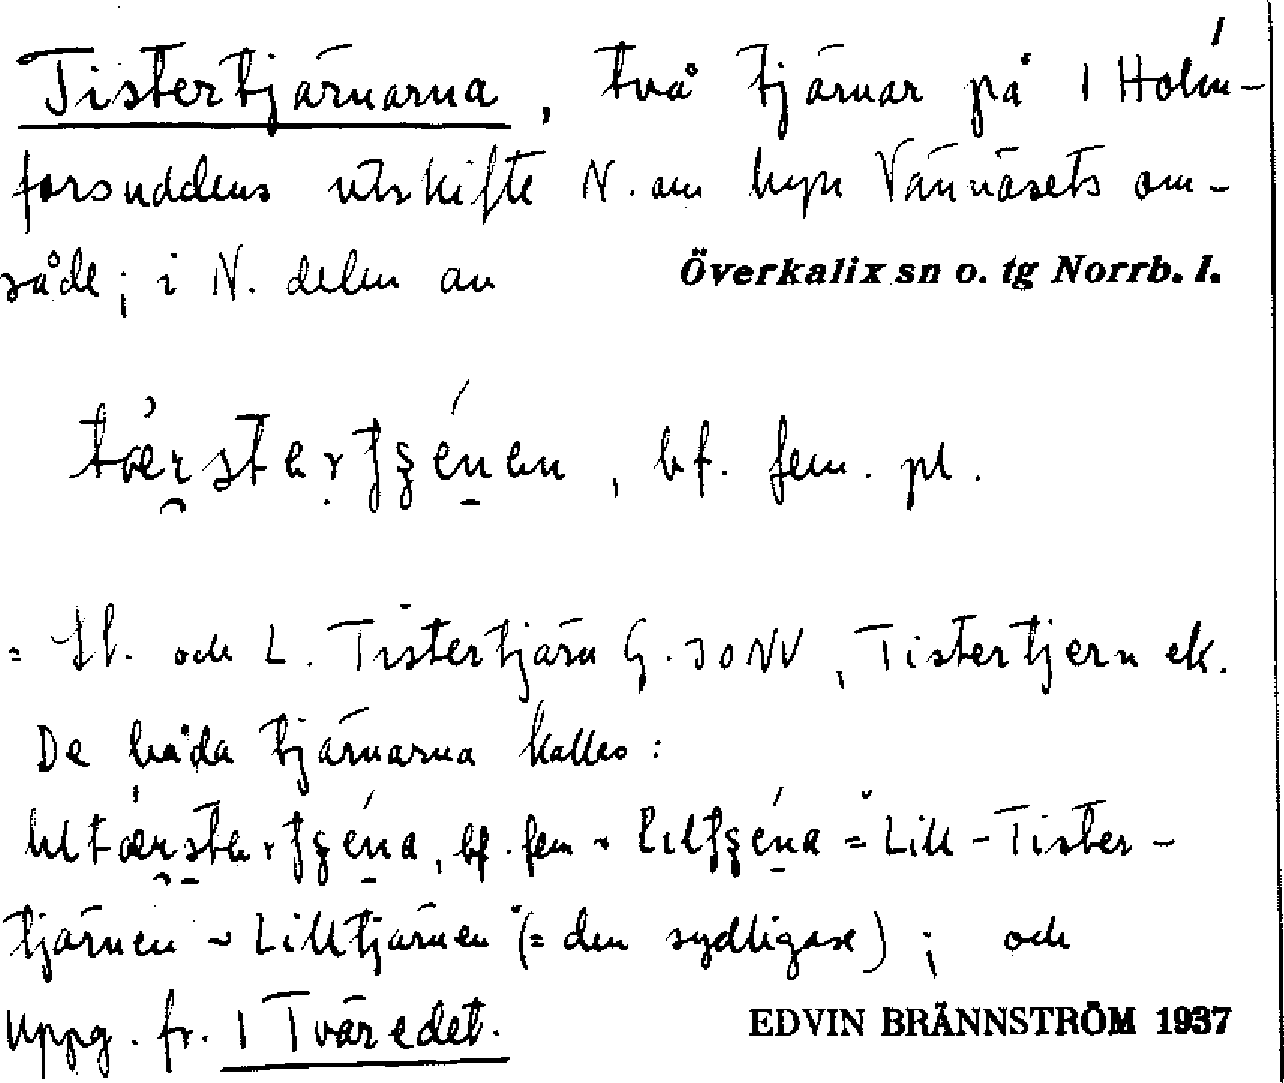 Tistertjärnarna, två tjärnar på 1 Holm-
forsuddens utskifte N. om byn Vännäsets om-
råde; i N. delen av
Överkalix sn o. tg Norrb. l.
bf. fem. pl.
= St. och L. Tistertjärn G. 30 NV, Tistertjern ek.
De båda tjärnarna kallas:
bf. fem ~ = Lill-Tister-
tjärnen ~ Lilltjärnen (= den sydligase); och
Uppg. fr. 1 Tväredet.
EDVIN BRÄNNSTRÖM 1937